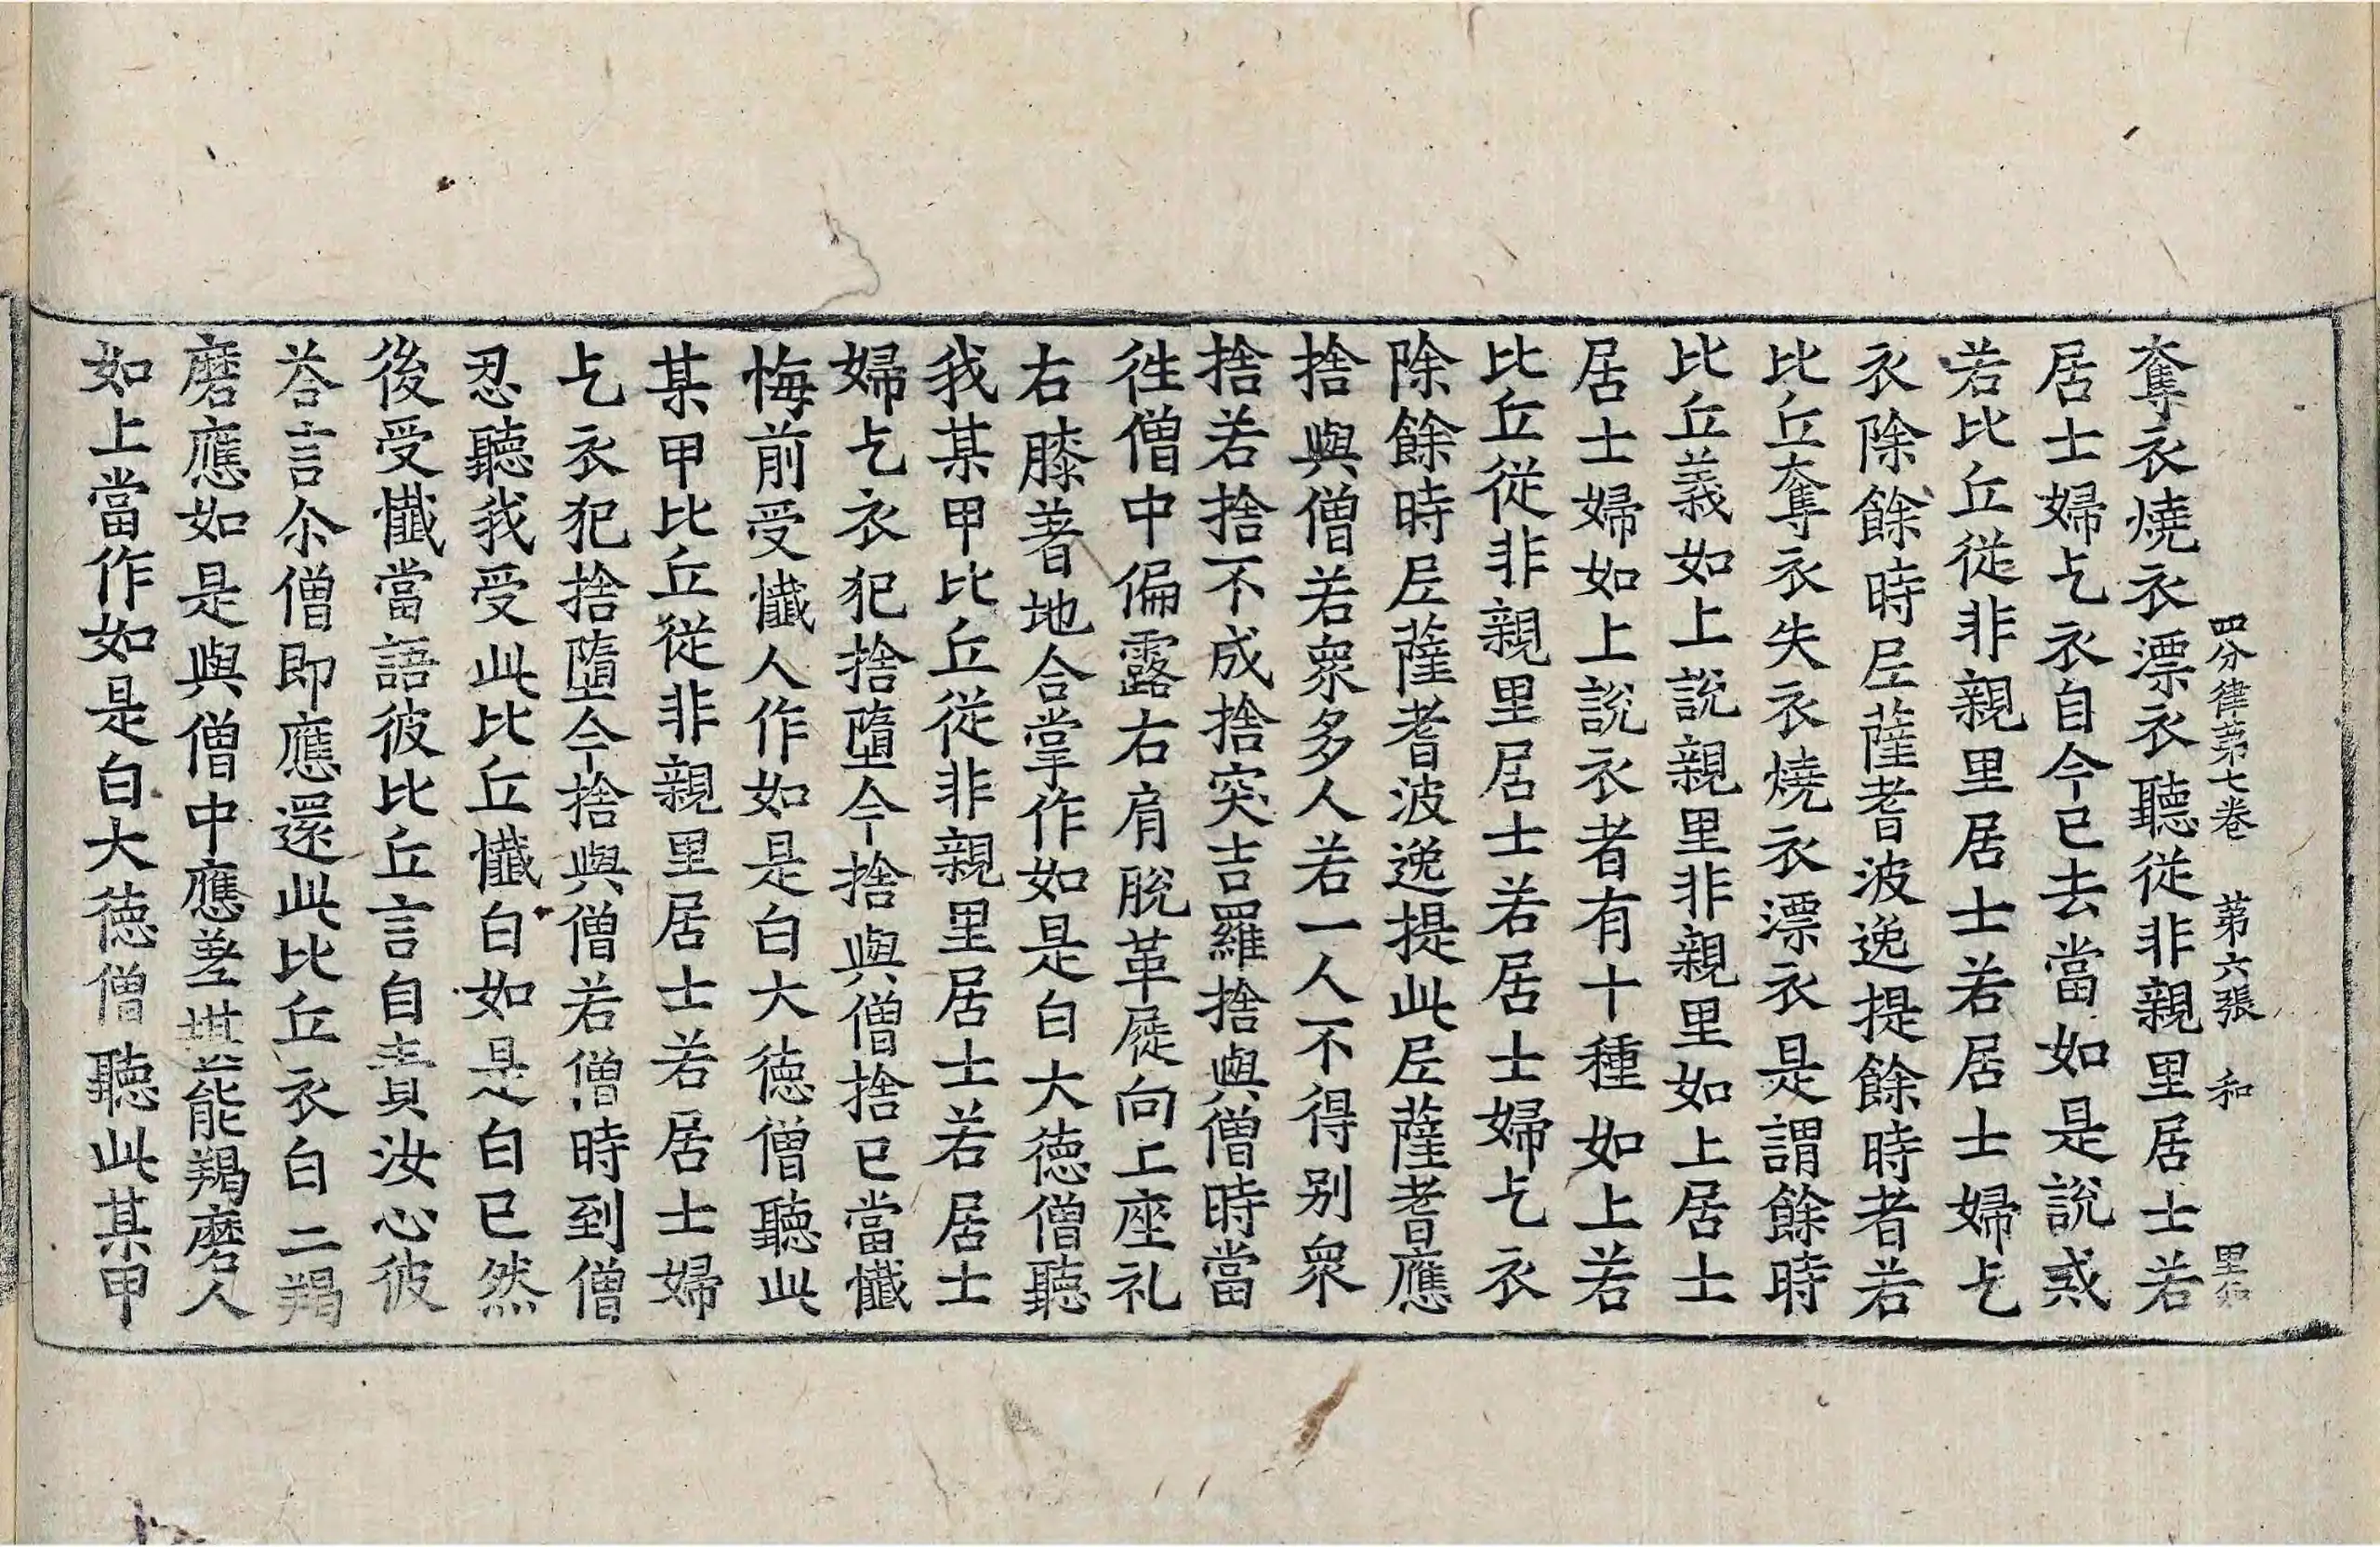 四分律第七卷 第六張 和
奪衣燒衣漂衣聽従非親里居士若
居士婦乞衣自今已去當如是說若
若比丘従非親里居士若居士婦乞
衣除餘時尼薩耆波逸提餘時者若
比丘奪衣失衣燒衣漂衣是謂餘時
比丘義如上說親里非親里如上居士
居士婦如上說衣者有十種如上若
比丘従非親里居士若居士婦乞衣
除餘時尼薩耆波逸提此尼薩耆應
捨與僧若衆多人若一人不得别衆
捨若捨不成捨突吉羅捨與僧時當
徃僧中偏露右肩脫革屣向上座礼
右膝著地合掌作如是白大德僧聽
我某甲比丘従非親里居士若居士
婦乞衣犯捨墮今捨與僧捨已當懺
悔前受懺人作如是白大德僧聽此
某甲比丘従非親里居士若居士婦
乞衣犯捨墮今捨與僧若僧時到僧
忍聽我受此比丘懺白如是白已然
後受懺當語彼比丘言自責汝心彼
荅言尒僧即應還此比丘衣白二羯
磨應如是與僧中應差堪能羯磨人
如上當作如是白大德僧聽此某甲